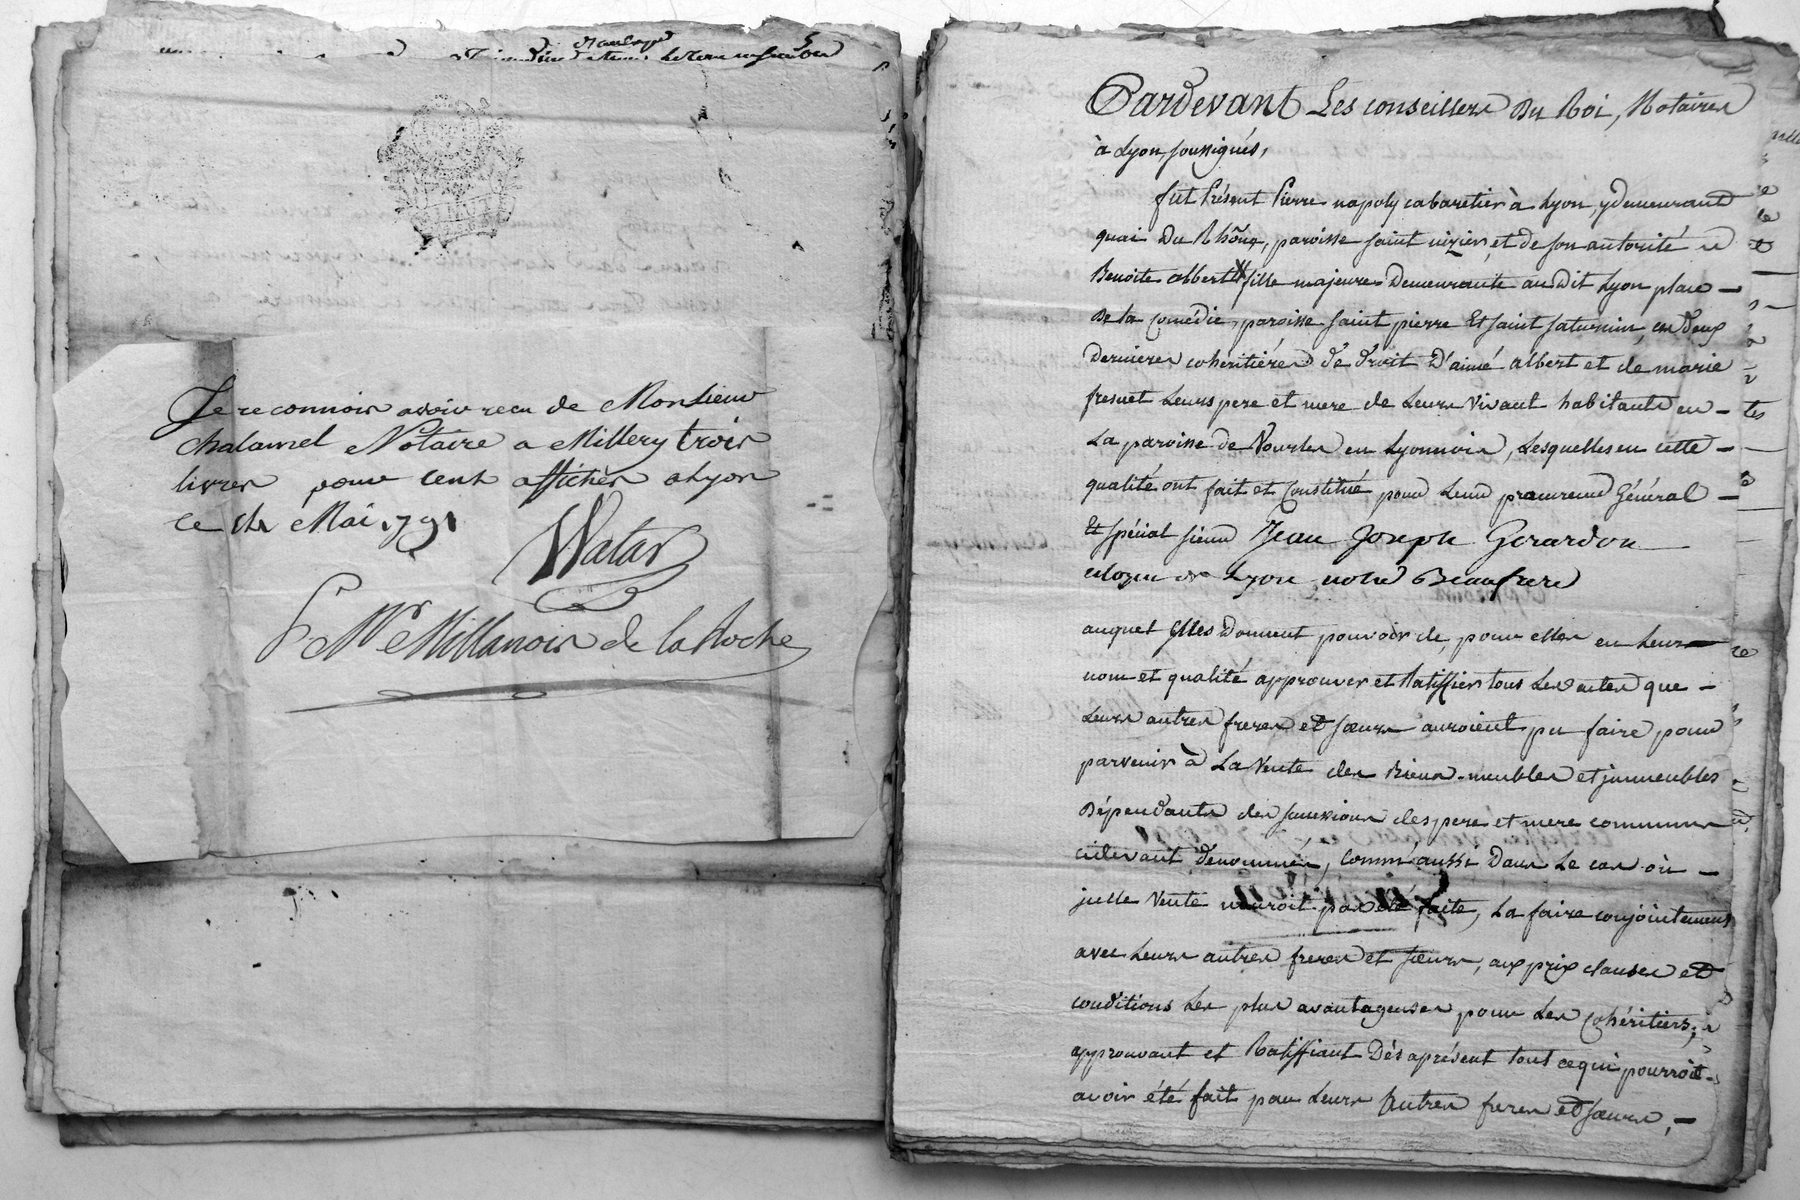 Je reconnois avoir recu de Monsieur
chalamel Notaire a Millery trois
livres pour cent affiches a Lyon
ce Mai 1791
Watar
P. Mr Millanois de la Roche
Pardevant Les conseillers Du Roi, Notaires
à Lyon soussignés,
fut Présent Pierre napoly cabaretier à Lyon, y demeurant
quai Du Rhône, paroisse saint nizier, et de son autorité
Benoite albert fille majeure Demeurante audit Lyon place
De la Comédie, paroisse saint pierre Et saint saturnin, ces deux
dernieres coheritiéres de droit D'aimé albert et de marie
fresnet Leurs pere et mere de Leurs Vivant habitants en
La paroisse de Vourles en Lyonnois, Lesquelles en cette
qualité ont fait et Constitué pour Leur procureur Général
Et spécial sieur Jean Joseph Gerardon
citoyen de Lyon notre Beaufrere
auquel Elles Donnent pouvoir de, pour elles en Leurs
nom et qualité approuver et Ratiffier tous Les actes que
Leurs autres freres et sœurs auroient pu faire pour
parvenir à La Vente des Biens meubles et immeubles
Dépendants des successions des pere et mere communs
cidevant denommés, comm'aussi Dans Le cas où
icelle Vente n'auroit pas été faite, La faire conjointement
avec Leurs autres freres et sœurs, aux prix clauses et
conditions Les plus avantageuses pour Les Cohéritiers,
approuvant et Ratiffiant Dés aprésent tout ce qui pourroit
avoir été fait par Leurs Autres freres et sœurs,